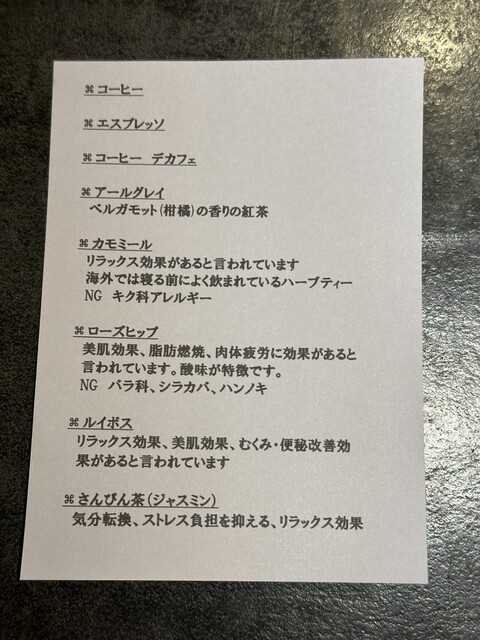 ⌘コーヒー
⌘エスプレッソ
⌘コーヒー　デカフェ
⌘アールグレイ
ベルガモット(柑橘)の香りの紅茶
⌘カモミール
リラックス効果があると言われています
海外では寝る前によく飲まれているハーブティー
NG　キク科アレルギー
⌘ローズヒップ
美肌効果、脂肪燃焼、肉体疲労に効果があると
言われています。酸味が特徴です。
NG　バラ科、シラカバ、ハンノキ
⌘ルイボス
リラックス効果、美肌効果、むくみ・便秘改善効
果があると言われています
⌘さんぴん茶(ジャスミン)
気分転換、ストレス負担を抑える、リラックス効果